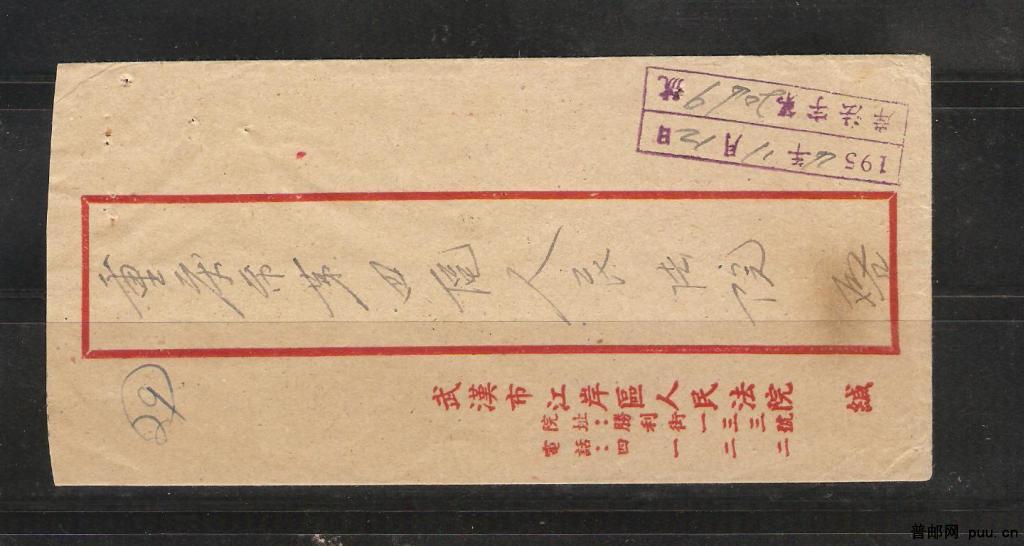 岸法字第號
195年11月12日
重慶市第四區人民法院 啓
武漢市江岸區人民法院 緘
院址：勝利街一三三號
電話：四一二二
普邮网 puu.cn